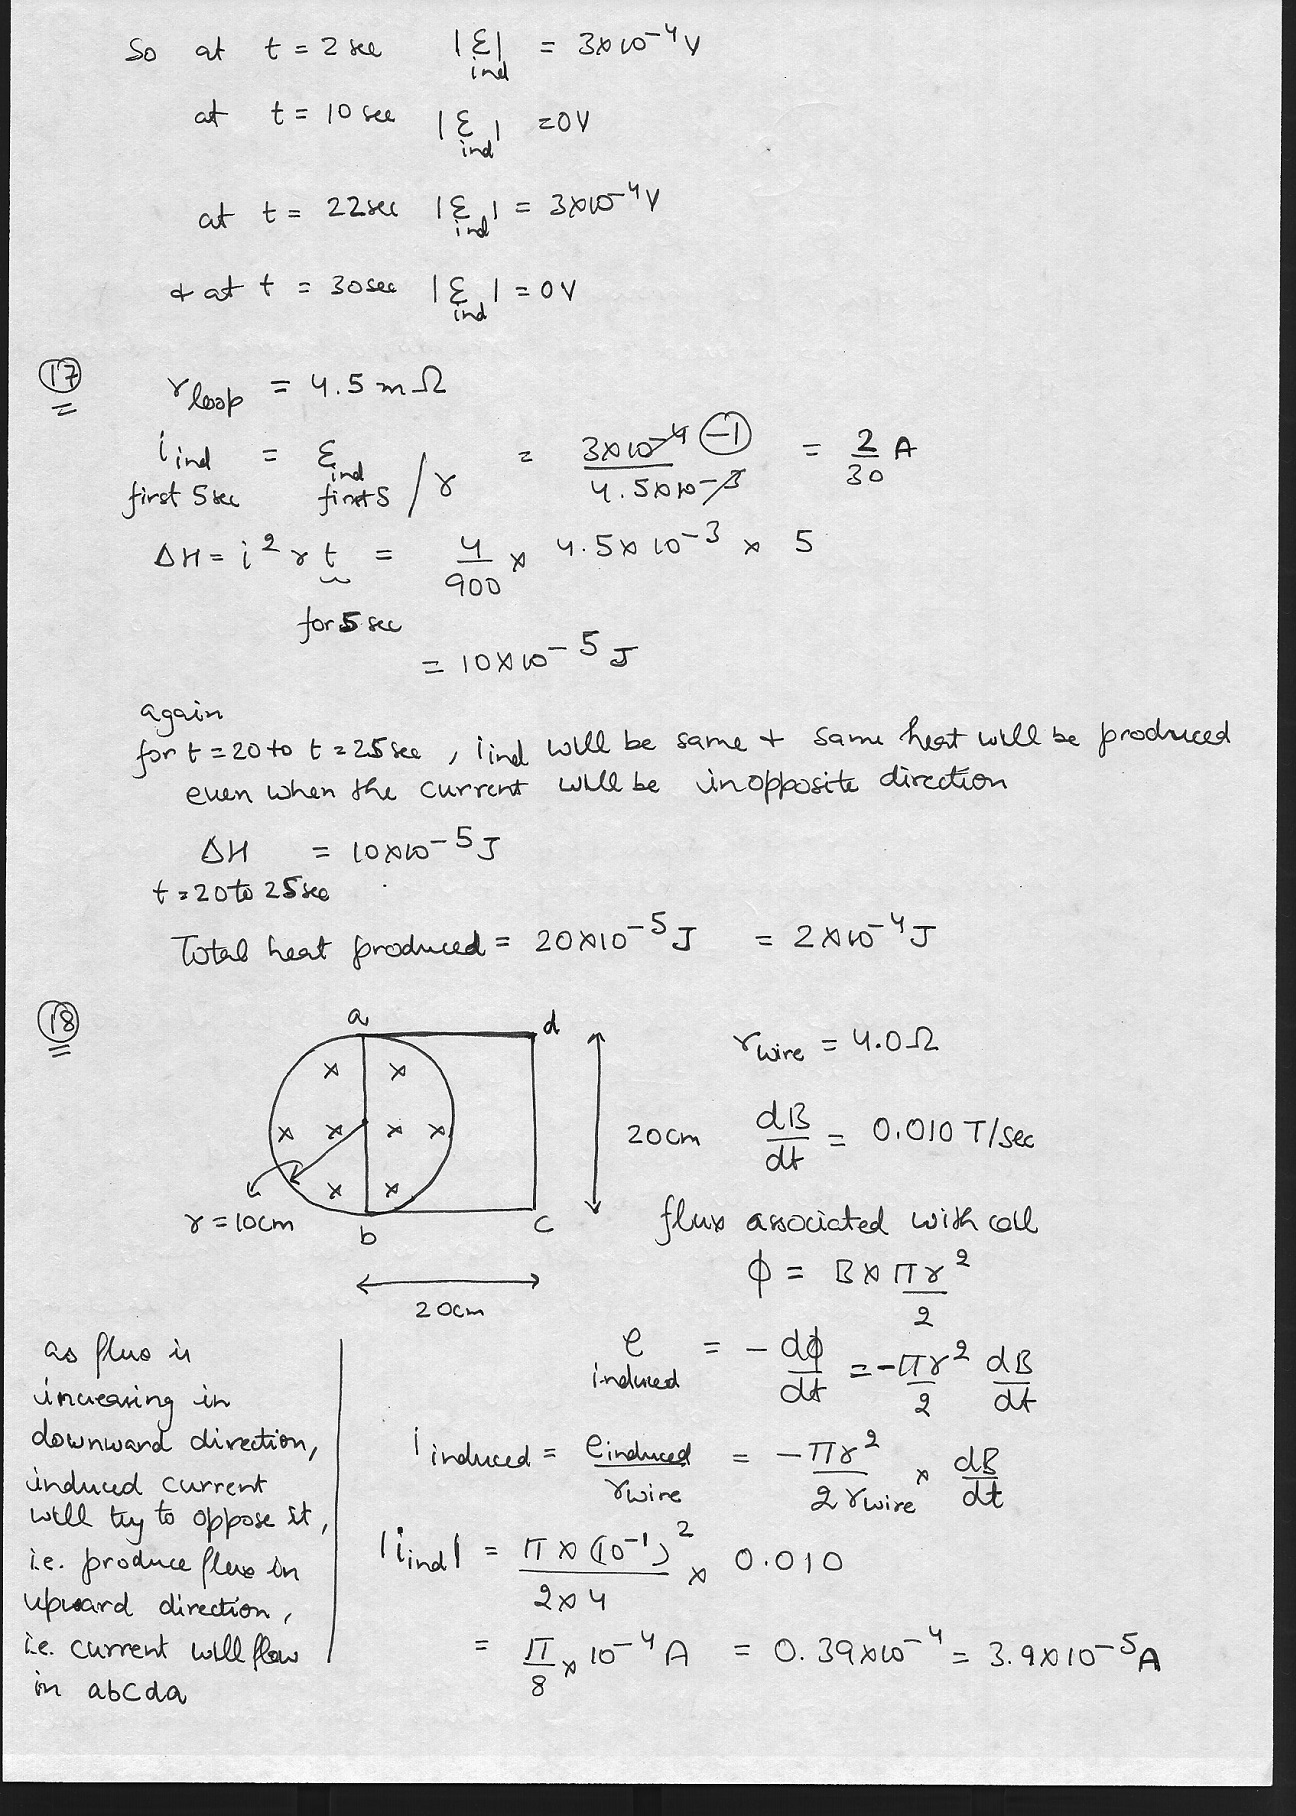 So at t = 2 sec |ε ind| = 3×10⁻⁴ V
at t = 10 sec |ε ind| = 0V
at t = 22sec |ε ind| = 3×10⁻⁴V
& at t = 30sec |ε ind| = 0V
17
r loop = 4.5 mΩ
i ind first 5 sec = ε ind first 5 / r = 3×10⁻⁴ (-1) / 4.5×10⁻³ = 2/30 A
ΔH = i² r t = 4/900 × 4.5×10⁻³ × 5
for 5 sec
= 10×10⁻⁵ J
again
for t = 20 to t = 25 sec, i ind will be same & same heat will be produced
even when the current will be in opposite direction
ΔH = 10×10⁻⁵ J
t = 20 to 25 sec
Total heat produced = 20×10⁻⁵ J = 2×10⁻⁴ J
18
a d
r wire = 4.0Ω
20cm
dB/dt = 0.010 T/sec
r = 10cm
b c
flux associated with coil
φ = B × πr²/2
20cm
e induced = - dφ/dt = - πr²/2 dB/dt
i induced = e induced / r wire = - πr² / 2 r wire × dB/dt
|i ind| = π × (10⁻¹)² / 2×4 × 0.010
= π/8 × 10⁻⁴ A = 0.39×10⁻⁴ = 3.9×10⁻⁵ A
as flux is
increasing in
downward direction,
induced current
will try to oppose it,
i.e. produce flux in
upward direction,
i.e. current will flow
in abcda